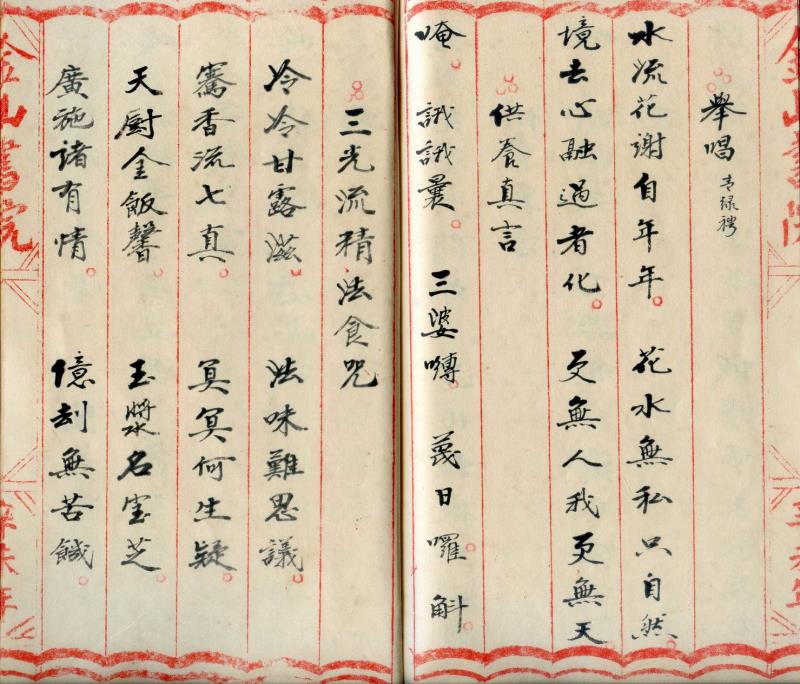 金山書院
辛未年
舉唱
水流花謝自年年。 花水無私只自然。
境去心融過者化。 更無人我更無天
供養真言
唵。 誐誐曩。 三婆嚩。 蔑日囉斛。
三光流精法食咒
冷冷甘露滋。 法味難思議。
騫香流七真。 冥冥何生疑。
天厨金飯馨。 玉漿名宝芝
廣施諸有情。 億劫無苦饑。
金山書院
辛未年